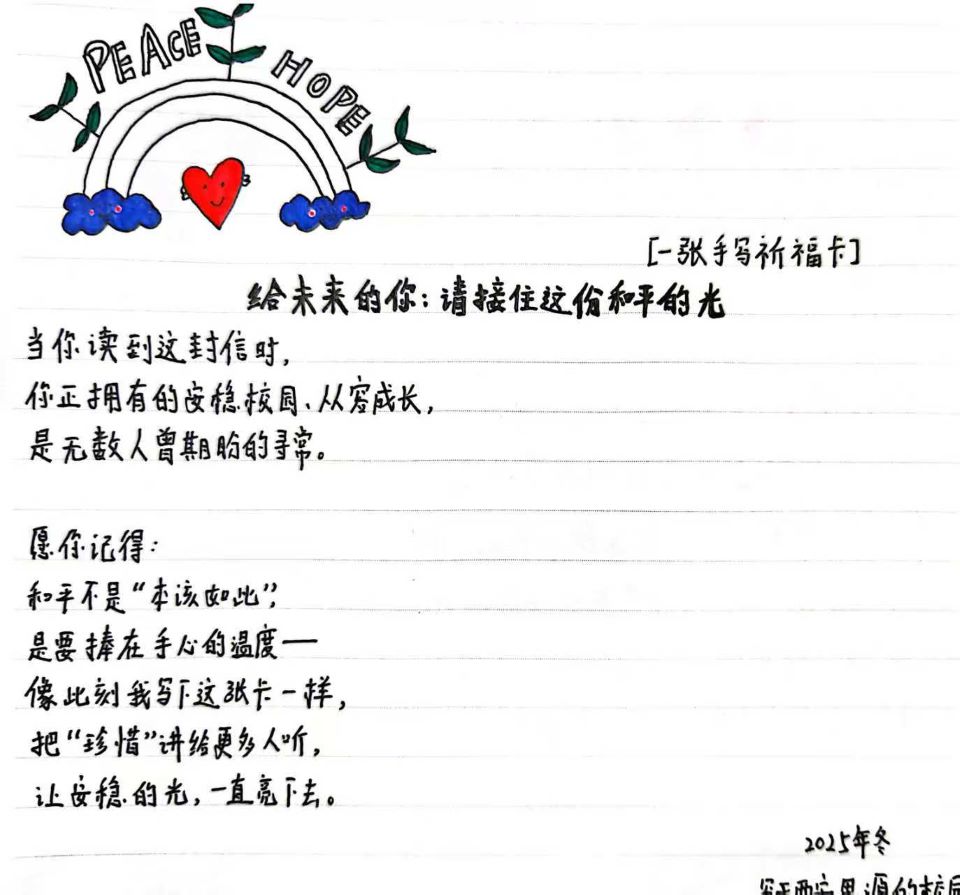 PEACE
HOPE
[一张手写祈福卡]
给未来的你：请接住这份和平的光
当你读到这封信时，
你正拥有的安稳校园、从容成长，
是无数人曾期盼的寻常。
愿你记得：
和平不是“本该如此”，
是要捧在手心的温度——
像此刻我写下这张卡一样，
把“珍惜”讲给更多人听，
让安稳的光，一直亮下去。
2025年冬
的校园